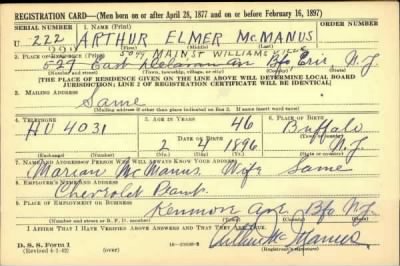 REGISTRATION CARD—(Men born on or after April 28, 1877 and on or before February 16, 1897)
SERIAL NUMBER 1. NAME (Print) ORDER NUMBER
U 222 ARTHUR ELMER McMANUS
5077 MAIN ST WILLIAMSVILLE
527 East Delavan Av Bfo Erie N.Y.
(Number and street) (Town, township, village, or city) (County) (State)
[THE PLACE OF RESIDENCE GIVEN ON THE LINE ABOVE WILL DETERMINE LOCAL BOARD
JURISDICTION; LINE 2 OF REGISTRATION CERTIFICATE WILL BE IDENTICAL]
3. MAILING ADDRESS
Same
[Mailing address if other than place indicated on line 2. If same insert word same]
4. TELEPHONE 5. AGE IN YEARS 6. PLACE OF BIRTH
HU 4031 46 Buffalo
DATE OF BIRTH
2 4 1896 N.Y.
(Exchange) (Number) (Mo.) (Day) (Yr.) (State or country)
7. NAME AND ADDRESS OF PERSON WHO WILL ALWAYS KNOW YOUR ADDRESS
Marian McManus Wife Same
8. EMPLOYER'S NAME AND ADDRESS
Chevrolet Plant
9. PLACE OF EMPLOYMENT OR BUSINESS
Kenmore Ave Bfo N.Y.
(Number and street or R. F. D. number) (Town) (County) (State)
I AFFIRM THAT I HAVE VERIFIED ABOVE ANSWERS AND THAT THEY ARE TRUE.
D. S. S. Form 1
(Revised 4-1-42) (over) (Registrant's signature)
Arthur McManus